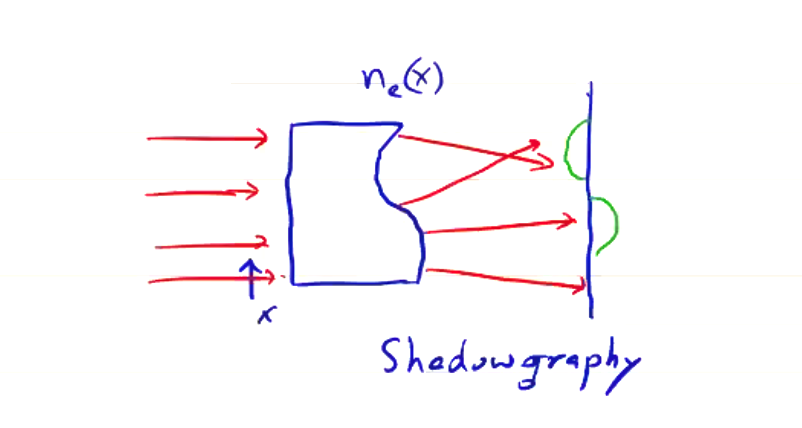 nₑ(x)
x
Shadowgraphy